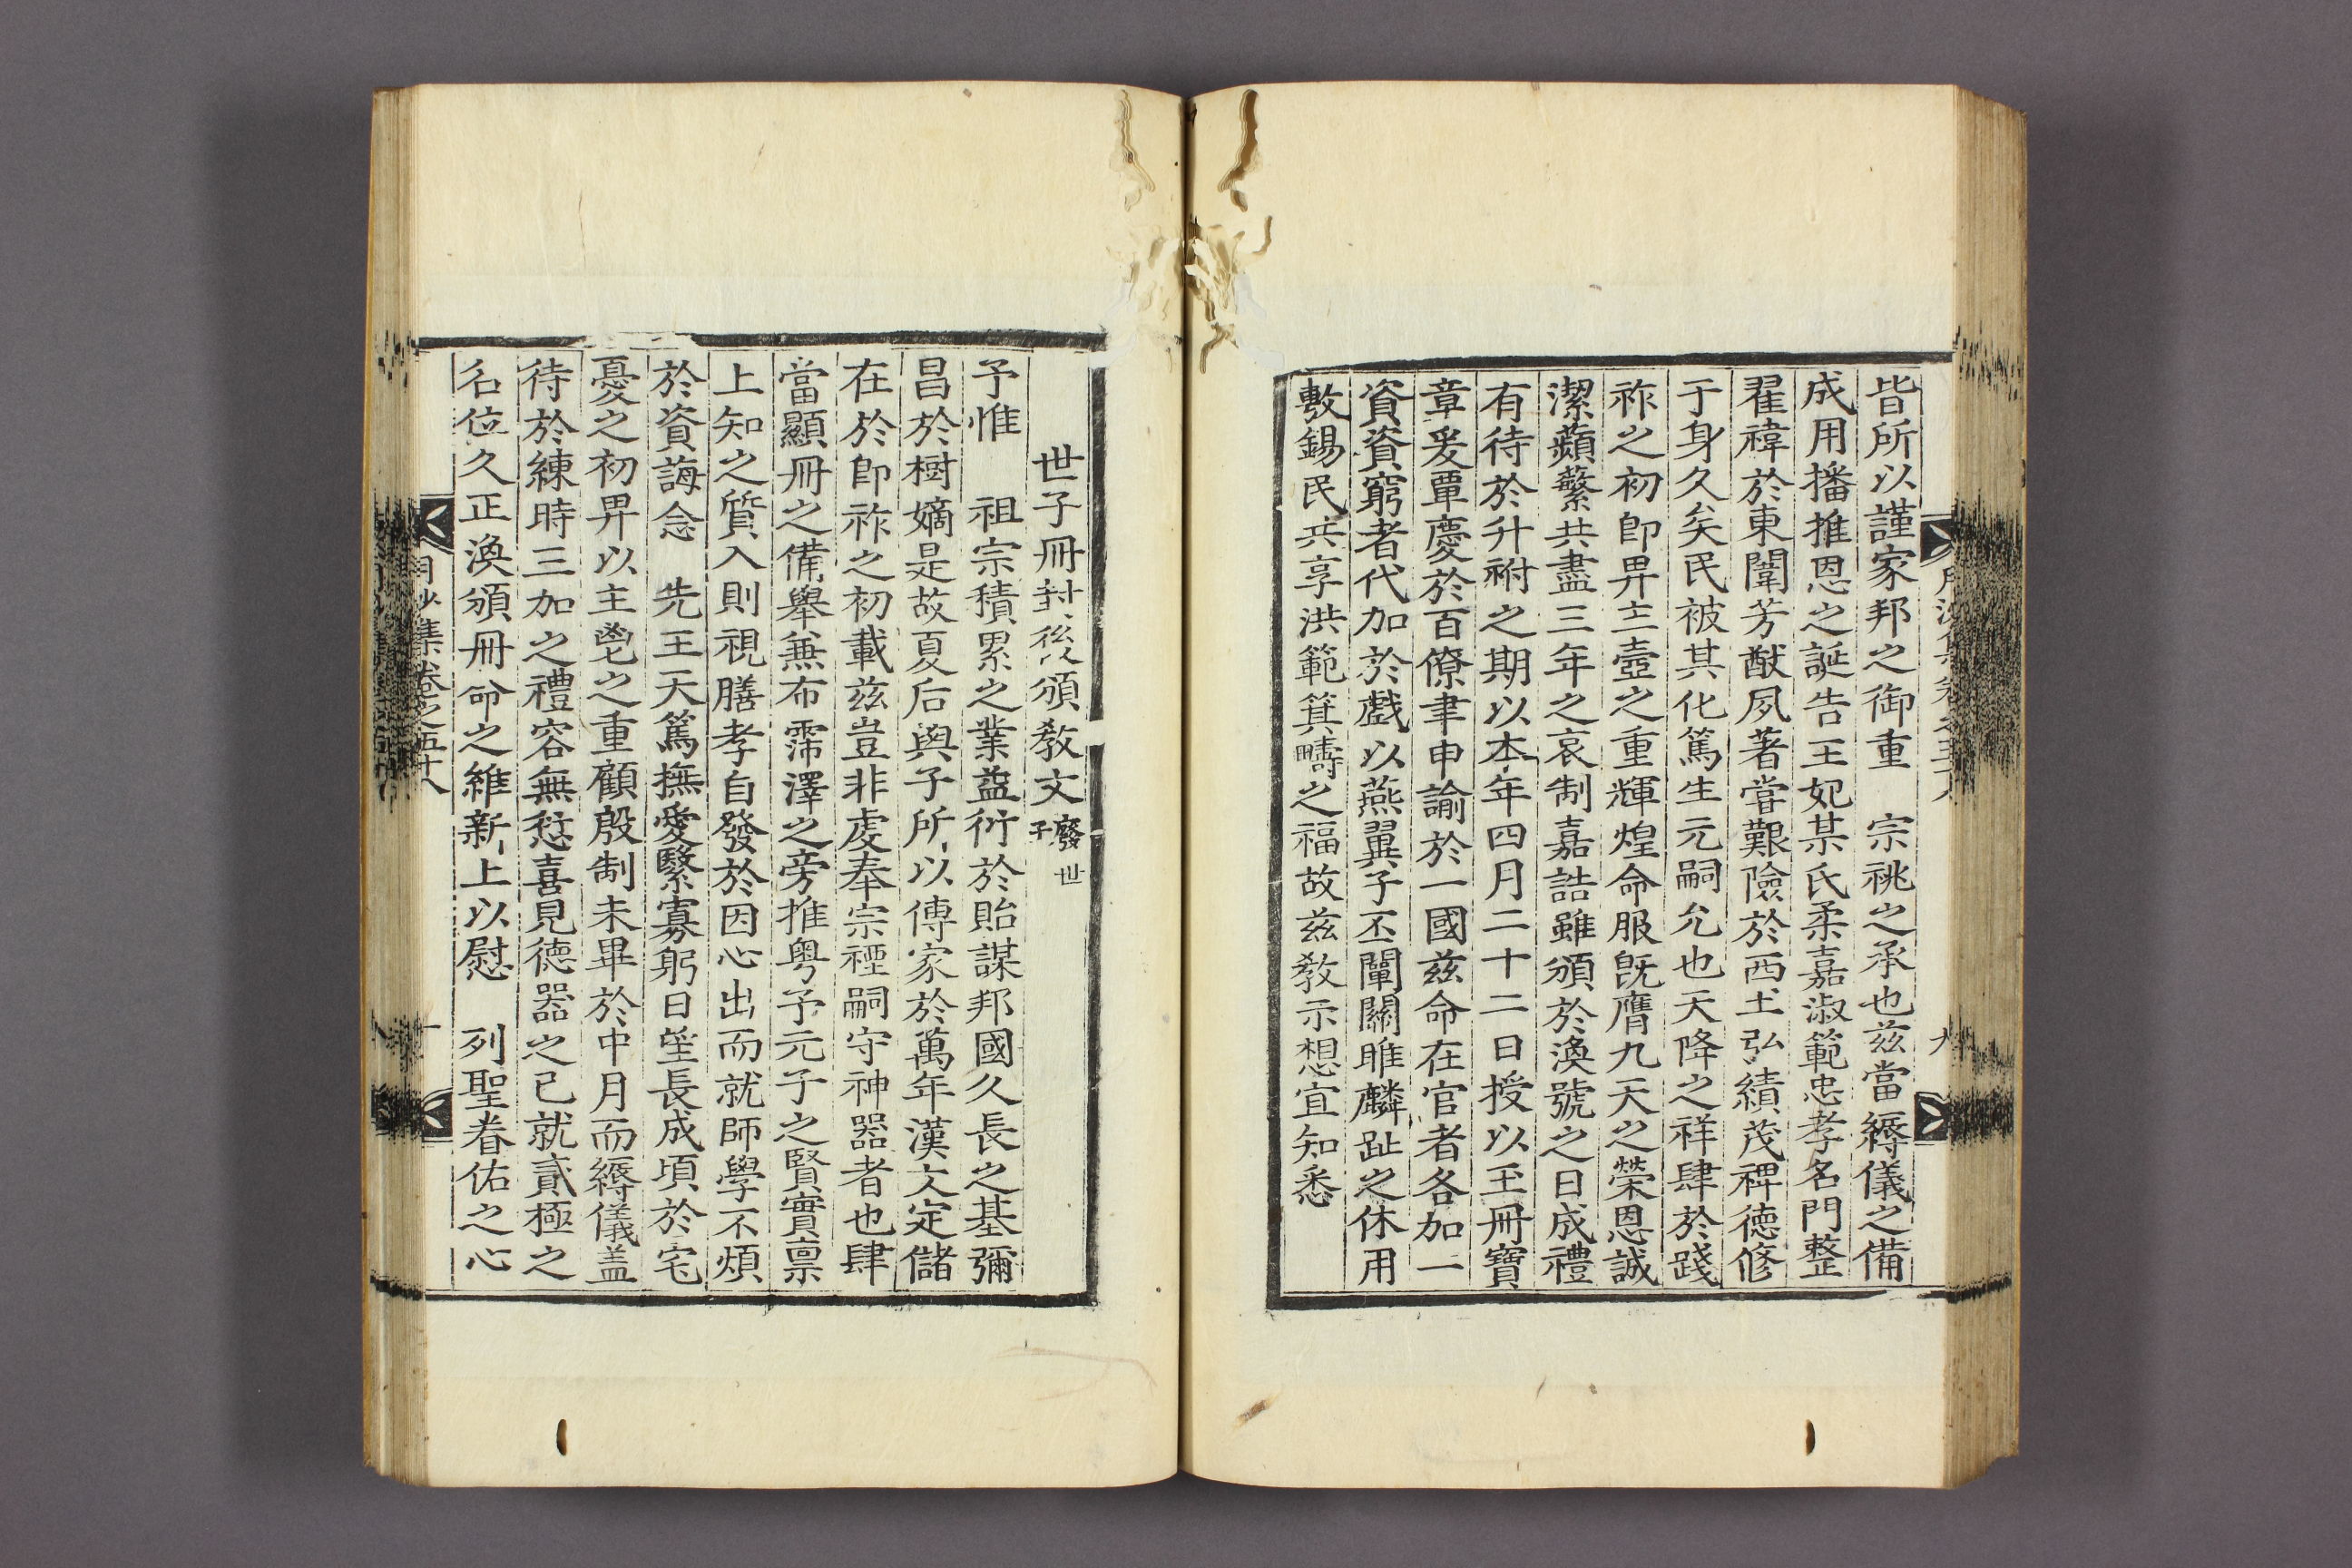 皆所以謹家邦之御重　宗祧之承也茲當縟儀之備
成用播推恩之誕告王妃某氏柔嘉淑範忠孝名門整
翟褘於東闈芳猷夙著嘗艱險於西土弘績茂稗德修
于身久矣民被其化篤生元嗣允也天降之祥肆於踐
祚之初卽畀主壼之重輝煌命服旣膺九天之榮恩誠
潔蘋蘩共盡三年之哀制嘉誥雖頒於渙號之日成禮
有待於升祔之期以本年四月二十二日授以玉冊寶
章爰覃慶於百僚聿申諭於一國茲命在官者各加一
資資窮者代加於戲以燕翼子丕闡關雎麟趾之休用
敷錫民共享洪範箕疇之福故茲敎示想宜知悉
世子冊封後頒敎文廢世子
予惟　祖宗積累之業益衍於貽謀邦國久長之基彌
昌於樹嫡是故夏后與子所以傳家於萬年漢文定儲
在於卽祚之初載茲豈非虔奉宗禋嗣守神器者也肆
當顯冊之備擧兼布霈澤之旁推粤予元子之賢實稟
上知之質入則視膳孝自發於因心出而就師學不煩
於資誨念　先王天篤撫愛繄寡躬日望長成頃於宅
憂之初畀以主鬯之重顧殷制未畢於中月而縟儀盖
待於練時三加之禮容無愆喜見德器之已就貳極之
名位久正渙頒冊命之維新上以慰　列聖眷佑之心
月沙集卷之五十八
九
十